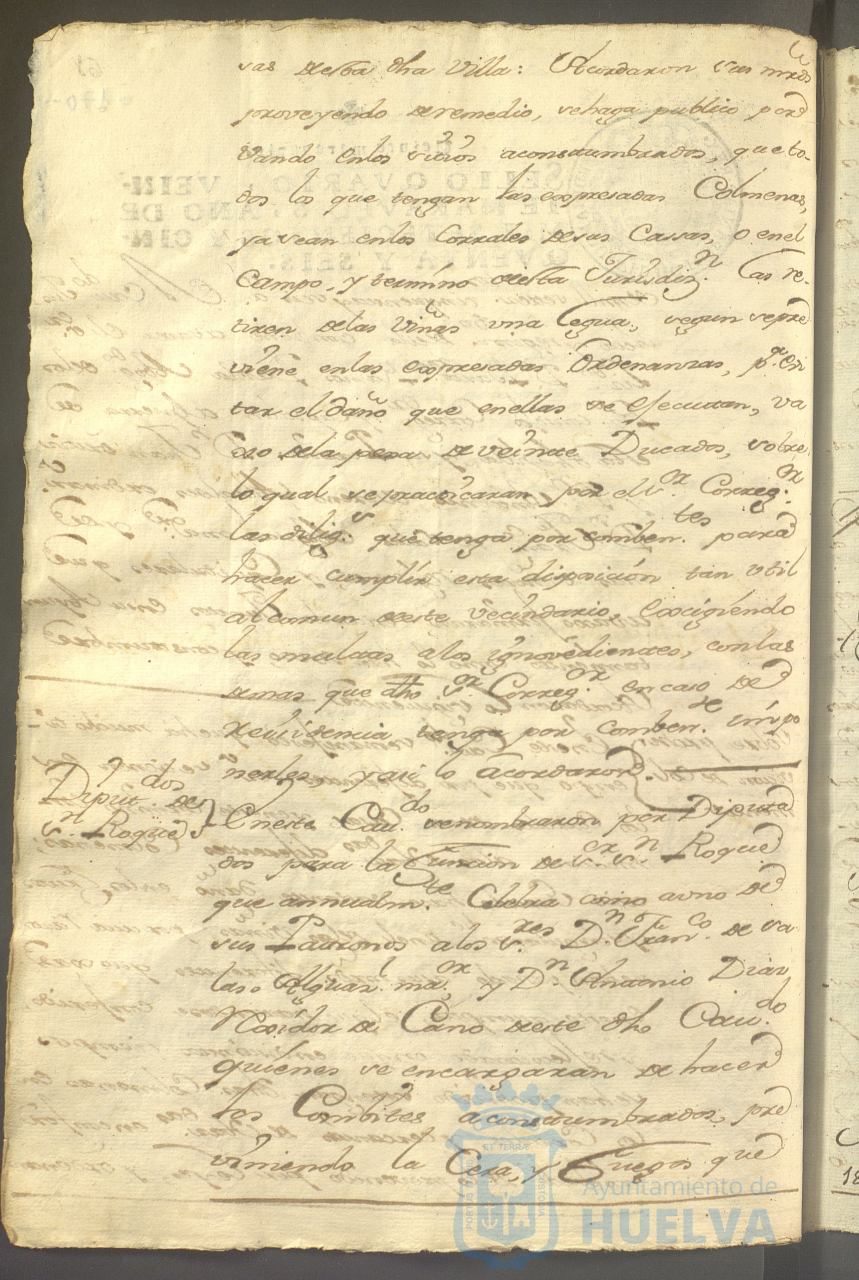 sas desta dha Villa: Acordaron sus mrds
proveyendo de remedio, se haga publico por
Vando en los sitios acostumbrados, que to-
dos los que tengan las expresadas Colmenas,
ya sean en los Corrales de sus Cassas, o en el
Campo, y termino desta Jurisdizn. las re-
tiren de las Viñas una legua, segun se pre
viene en las expresadas Ordenanzas, pa. evi
tar el daño que en ellas se ejecutan, va
xo de la pena de veinte Ducados, sobre
lo qual se practicaran por el Sr. Corregor.
las diligs. que tenga por combentes. para
hacer cumplir esta disposicion tan util
al comun deste vecindario, Exxigiendo
las multas a los ynovedientes, con las
demas que dho Sr. Corregor. en caso de
Reinsidencia tenga por combente. impo
nerles, y asi lo acordaron.
Diputdos de
Sn. Roque
En este Cavdo. se nombraron por Diputa
dos para la Funcion de Sor. Sn. Roque
que annualmte. Celebra como a uno de
sus Patronos a los Sres. Dn. Franco. de Va
las Alguasl. maor. y Dn. Antonio Diaz
Rexidor de Cano deste dho Cavdo.
quienes se encargaran de hacer
los Combites acostumbrados, pre
viniendo la Cera, y Fuegos que
Ayuntamiento de
HUELVA